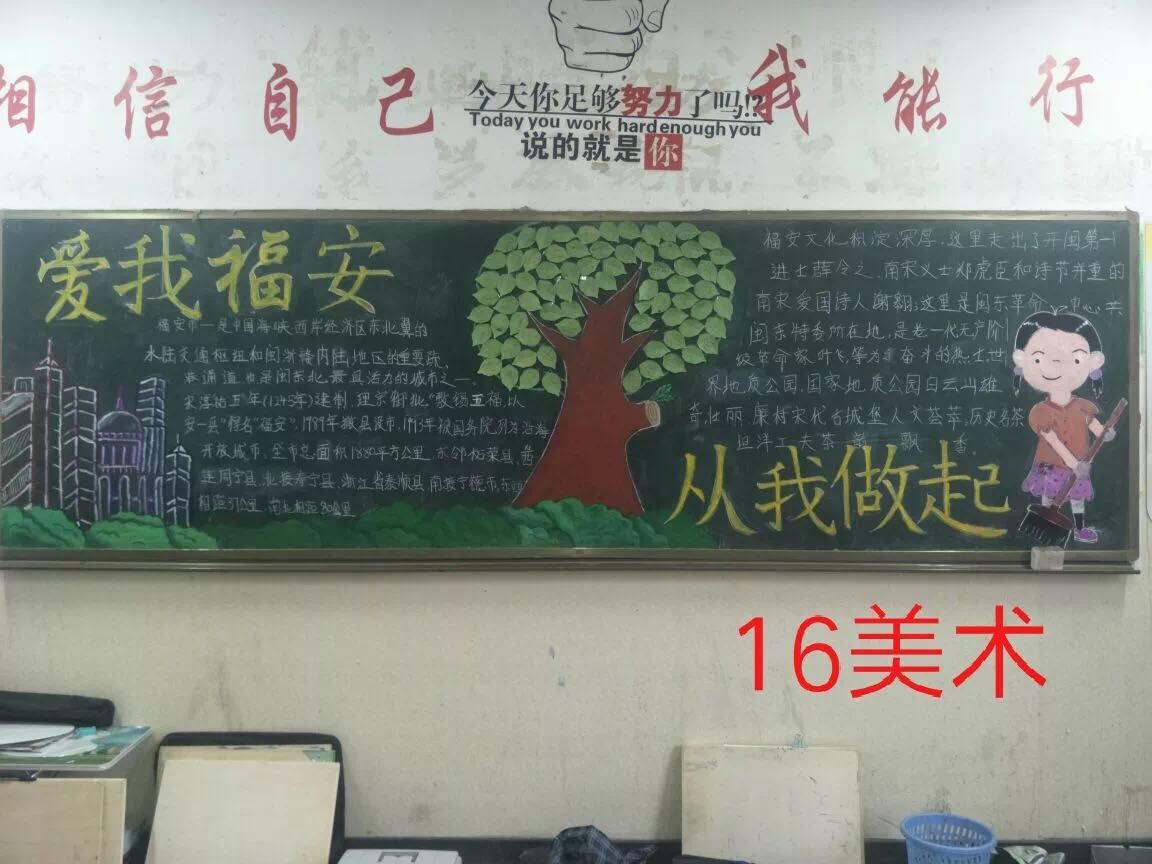 相信自己 我能行
今天你足够努力了吗!?
Today you work hard enough you
说的就是你
爱我福安
福安市一是中国海峡西岸经济区东北翼的
水陆交通枢纽和闽浙接内陆地区的重要疏
通道也是闽东北最具活力的城市之一.
宋淳祐五年(1245年)建制,理宗御批"敷锡五福,以
安一县"得名"福安".1989年撤县设市,
开放城市.全市总面积1880平方公里.东邻柘荣县,西
连周宁县,北接寿宁县、浙江省泰顺县,南接宁德市,东西
相距37公里,南北相距80公里
福安文化积淀深厚.这里走出了开闽第一
进士薛令之、南宋义士郑虎臣和诗节并重的
南宋爱国诗人谢翱;这里是闽东革命 中心共
闽东特委所在地,是老一代无产阶
级革命家叶飞等为 奋斗的热土世
界地质公园、国家地质公园白云山雄
奇壮丽,廉村宋代古城堡人文荟萃,历史名茶
坦洋工夫茶 飘香.
从我做起
16美术